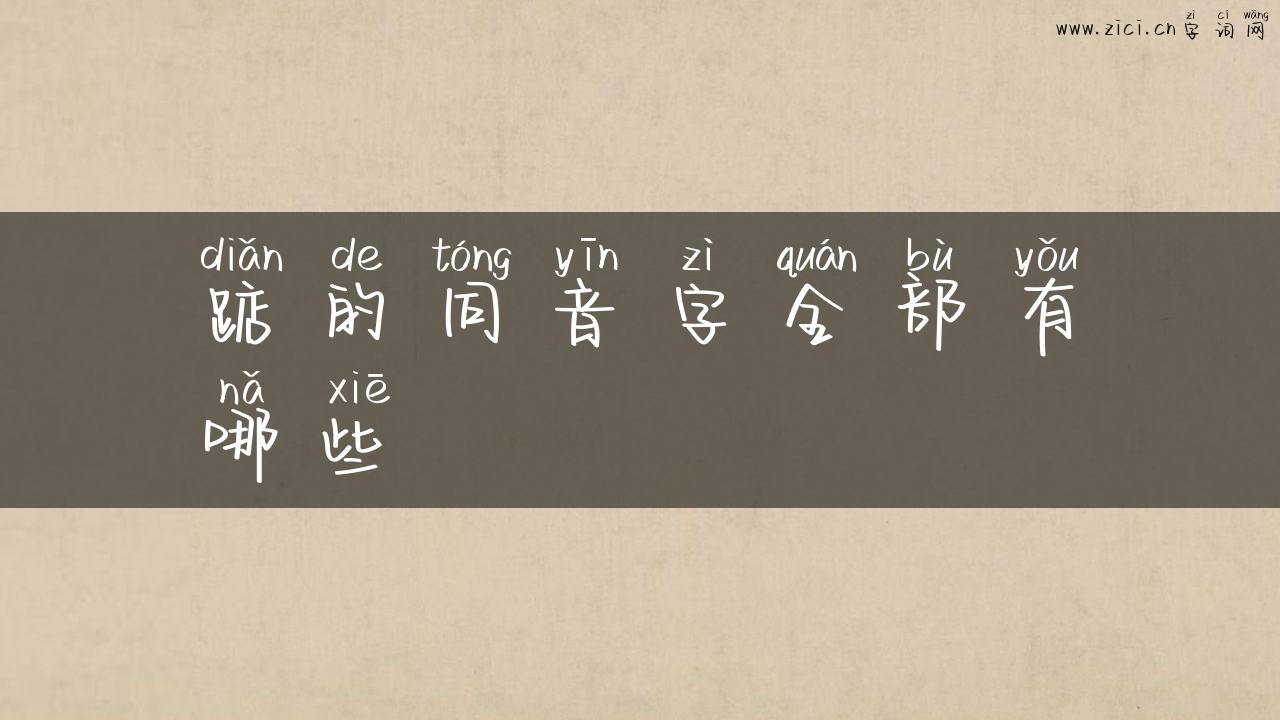 zì cí wǎng
www.zici.cn 字 词 网
diǎn de tóng yīn zì quán bù yǒu
踮 的 同 音 字 全 部 有
nǎ xiē
哪 些